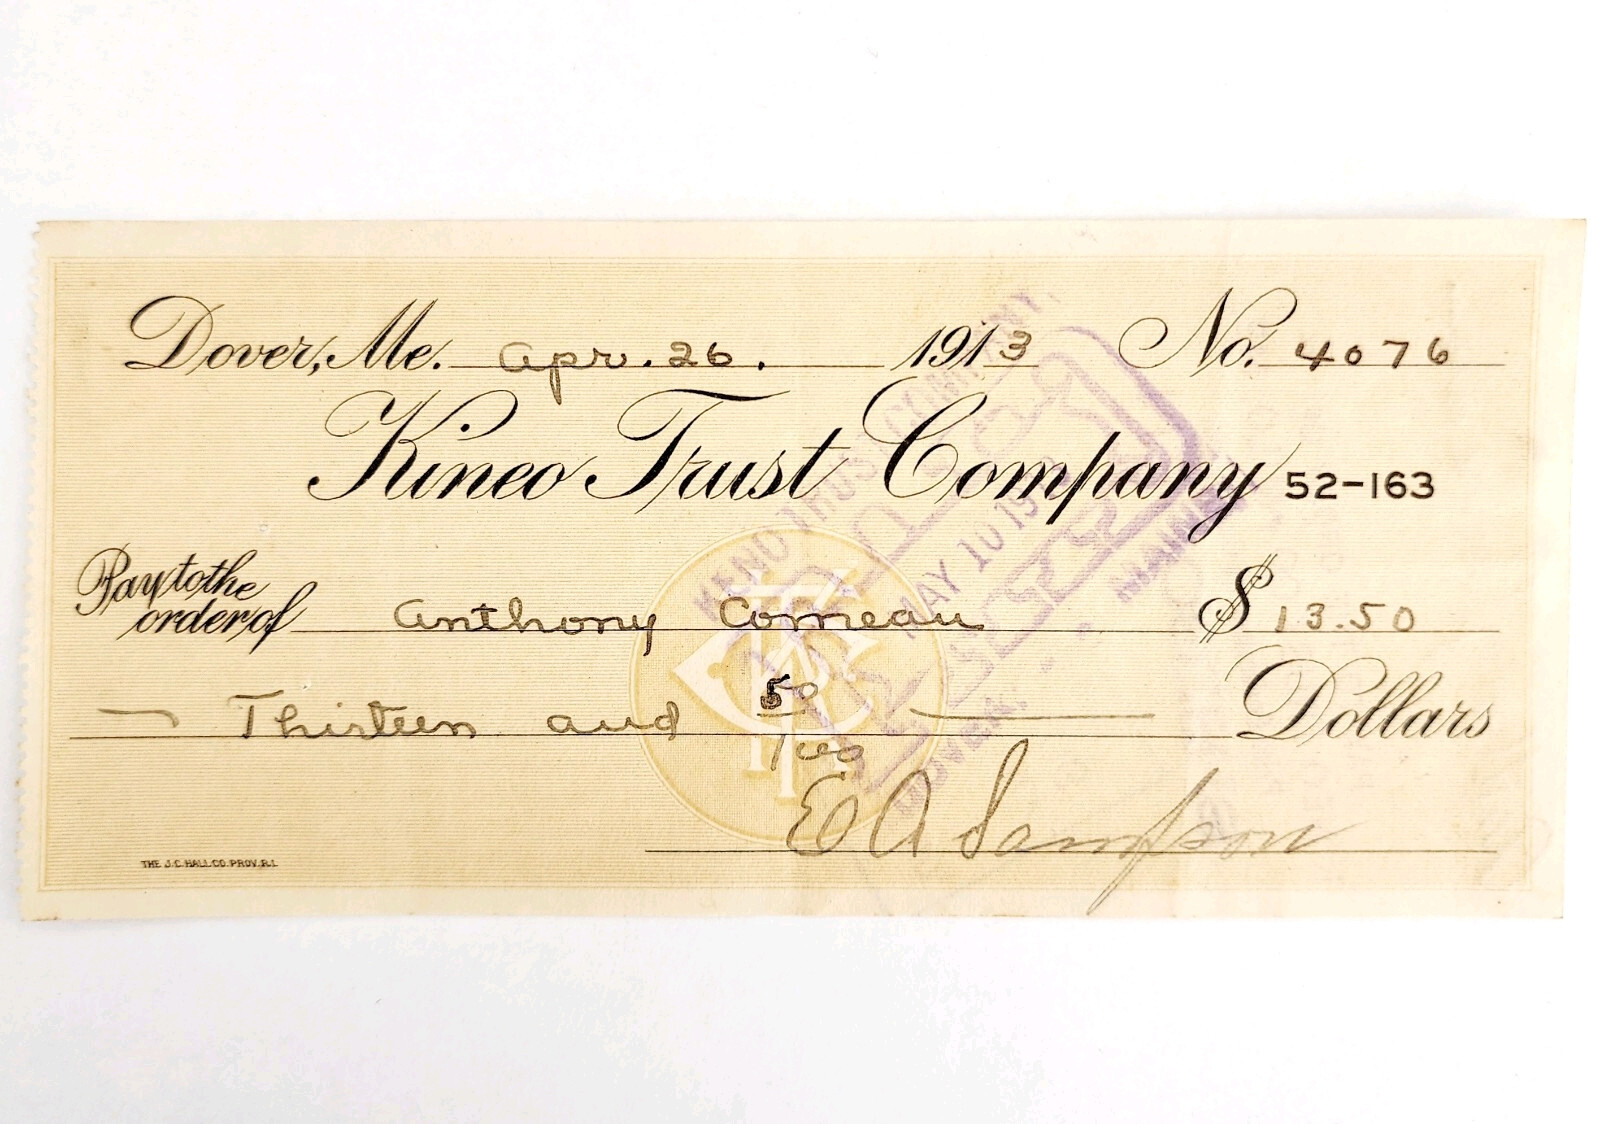 Dover, Me. Apr. 26. 1913 No. 4076
Kineo Trust Company 52-163
Pay to the order of Anthony Comeau $ 13.50
Thirteen and 50/100 Dollars
E A Sampson
THE J.C. HALL CO. PROV. R.I.
KINEO TRUST COMPANY,
MAY 10 19
DOVER, MAINE